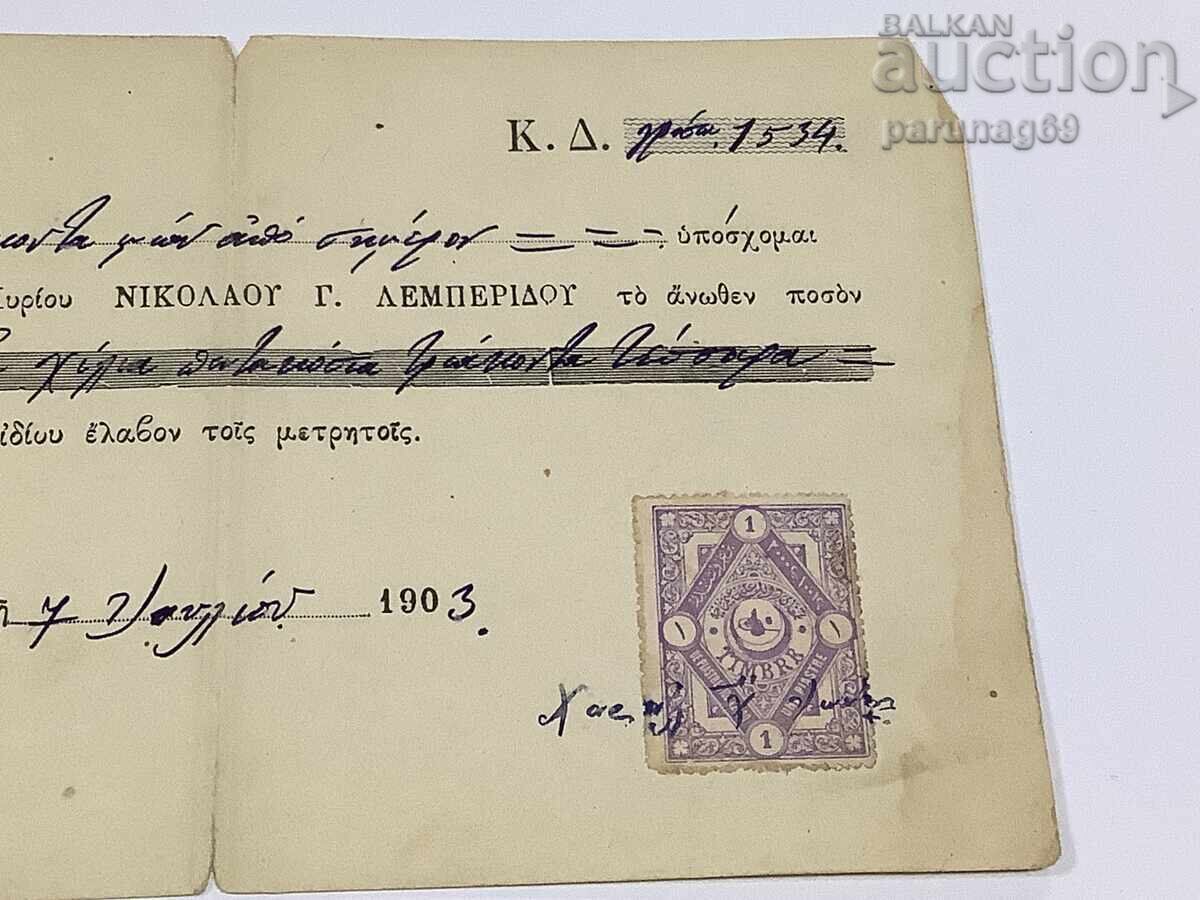 BALKAN
auction
parunag69
Κ. Δ. γρόσια 1534.
μηνῶν ἀπὸ σήμερον ὑπόσχομαι
Κυρίου ΝΙΚΟΛΑΟΥ Γ. ΛΕΜΠΕΡΙΔΟΥ τὸ ἄνωθεν ποσὸν
χίλια πεντακόσια τριάκοντα τέσσαρα
ἰδίου ἔλαβον τοῖς μετρητοῖς.
7 Ἰουλίου 1903.
1
١ ١
TIMBRE
PIASTRE
1